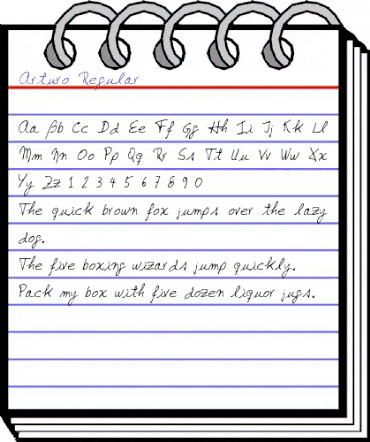 Arturo Regular
Aa Bb Cc Dd Ee Ff Gg Hh Ii Jj Kk Ll
Mm Nn Oo Pp Qq Rr Ss Tt Uu Vv Ww Xx
Yy Zz 1 2 3 4 5 6 7 8 9 0
The quick brown fox jumps over the lazy
dog.
The five boxing wizards jump quickly.
Pack my box with five dozen liquor jugs.